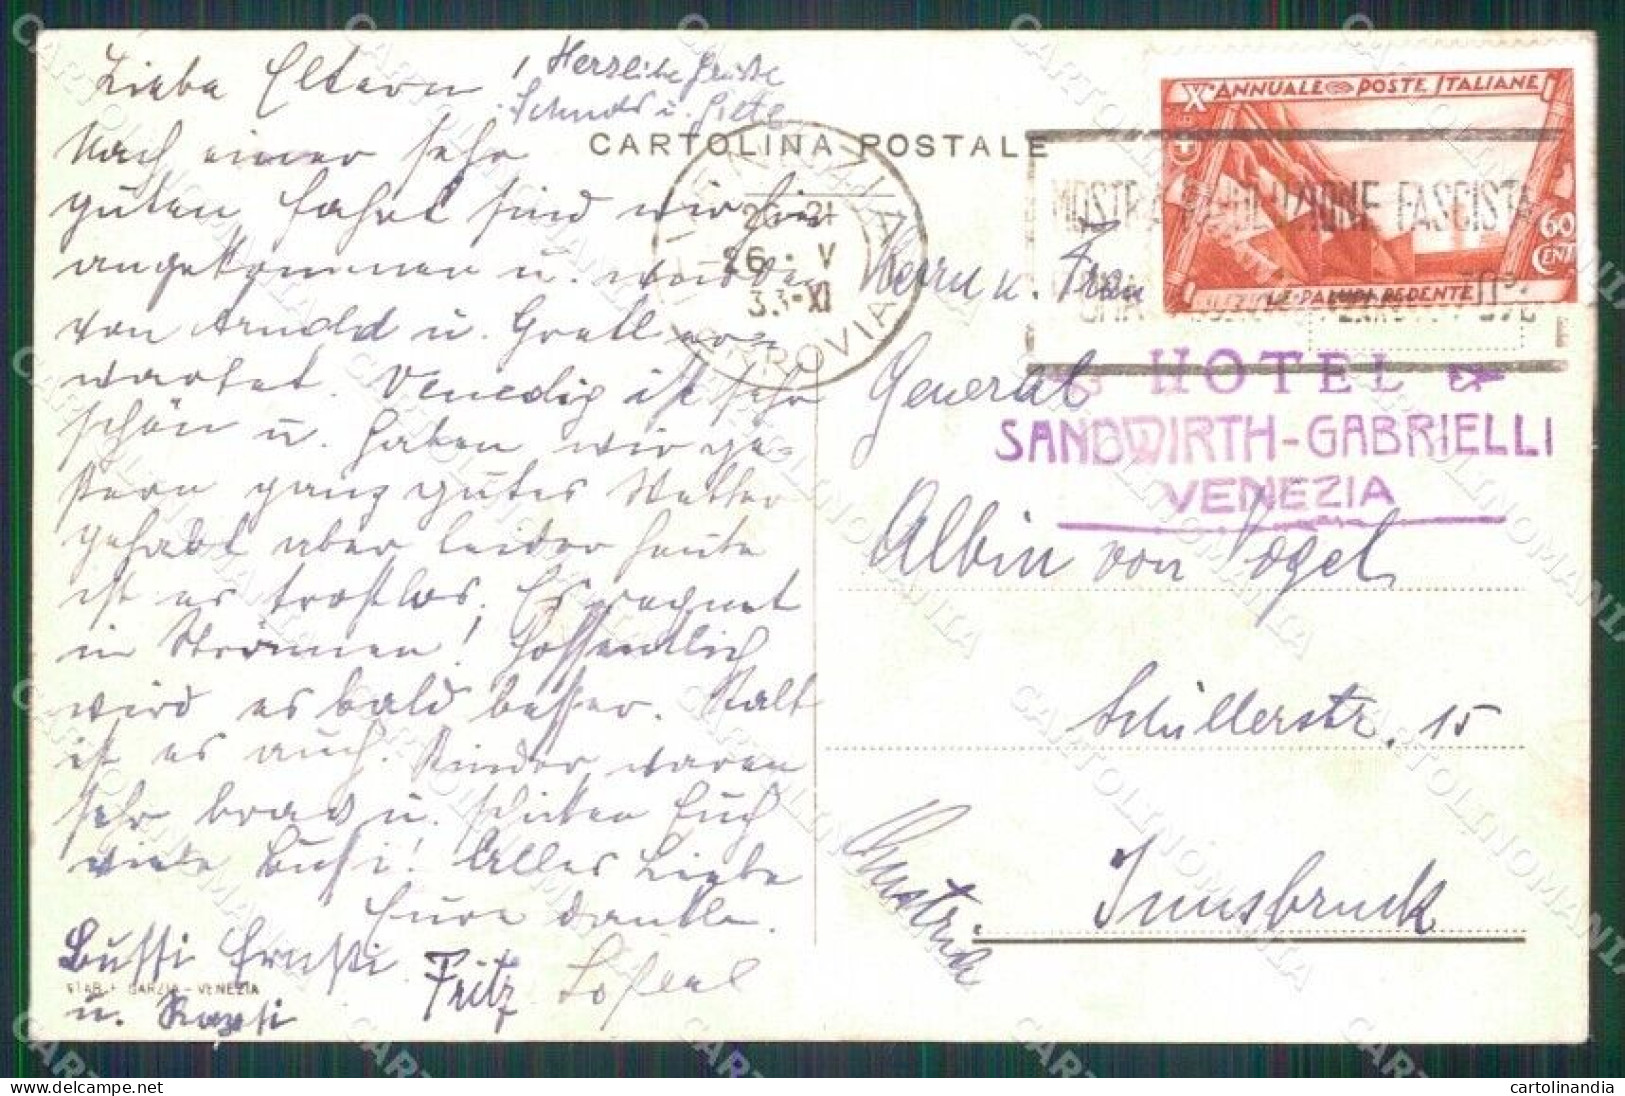 Liebe Eltern!
Herzliche Grüße
Nach einer sehr
guten Fahrt sind wir hier
angekommen u. wurden
von Arnold u. Gretl er-
wartet. Venedig ist sehr
schön u. haben wir ge-
stern ganz gutes Wetter
gehabt aber leider heute
ist es trostlos. Es regnet
in Strömen! Hoffentlich
wird es bald besser. Kalt
ist es auch. Kinder waren
sehr brav u. schicken Euch
viele Bussi! Alles Liebe
Eure dankb.
Bussi Ernsti
Fritz
STAB. GARZIA - VENEZIA
u.
CARTOLINA POSTALE
X° ANNUALE POSTE ITALIANE
60 CENT
REDENTE
VENEZIA
FERROVIA
20-21
26 · V
33-XI
MOSTRA RIVOLUZIONE FASCISTA
HOTEL
SANDWIRTH-GABRIELLI
VENEZIA
Herrn u. Frau
General
Albin von Vogel
Schüllerstr. 15
Innsbruck
Austria
CARTOLINOMANIA
cartolinandia